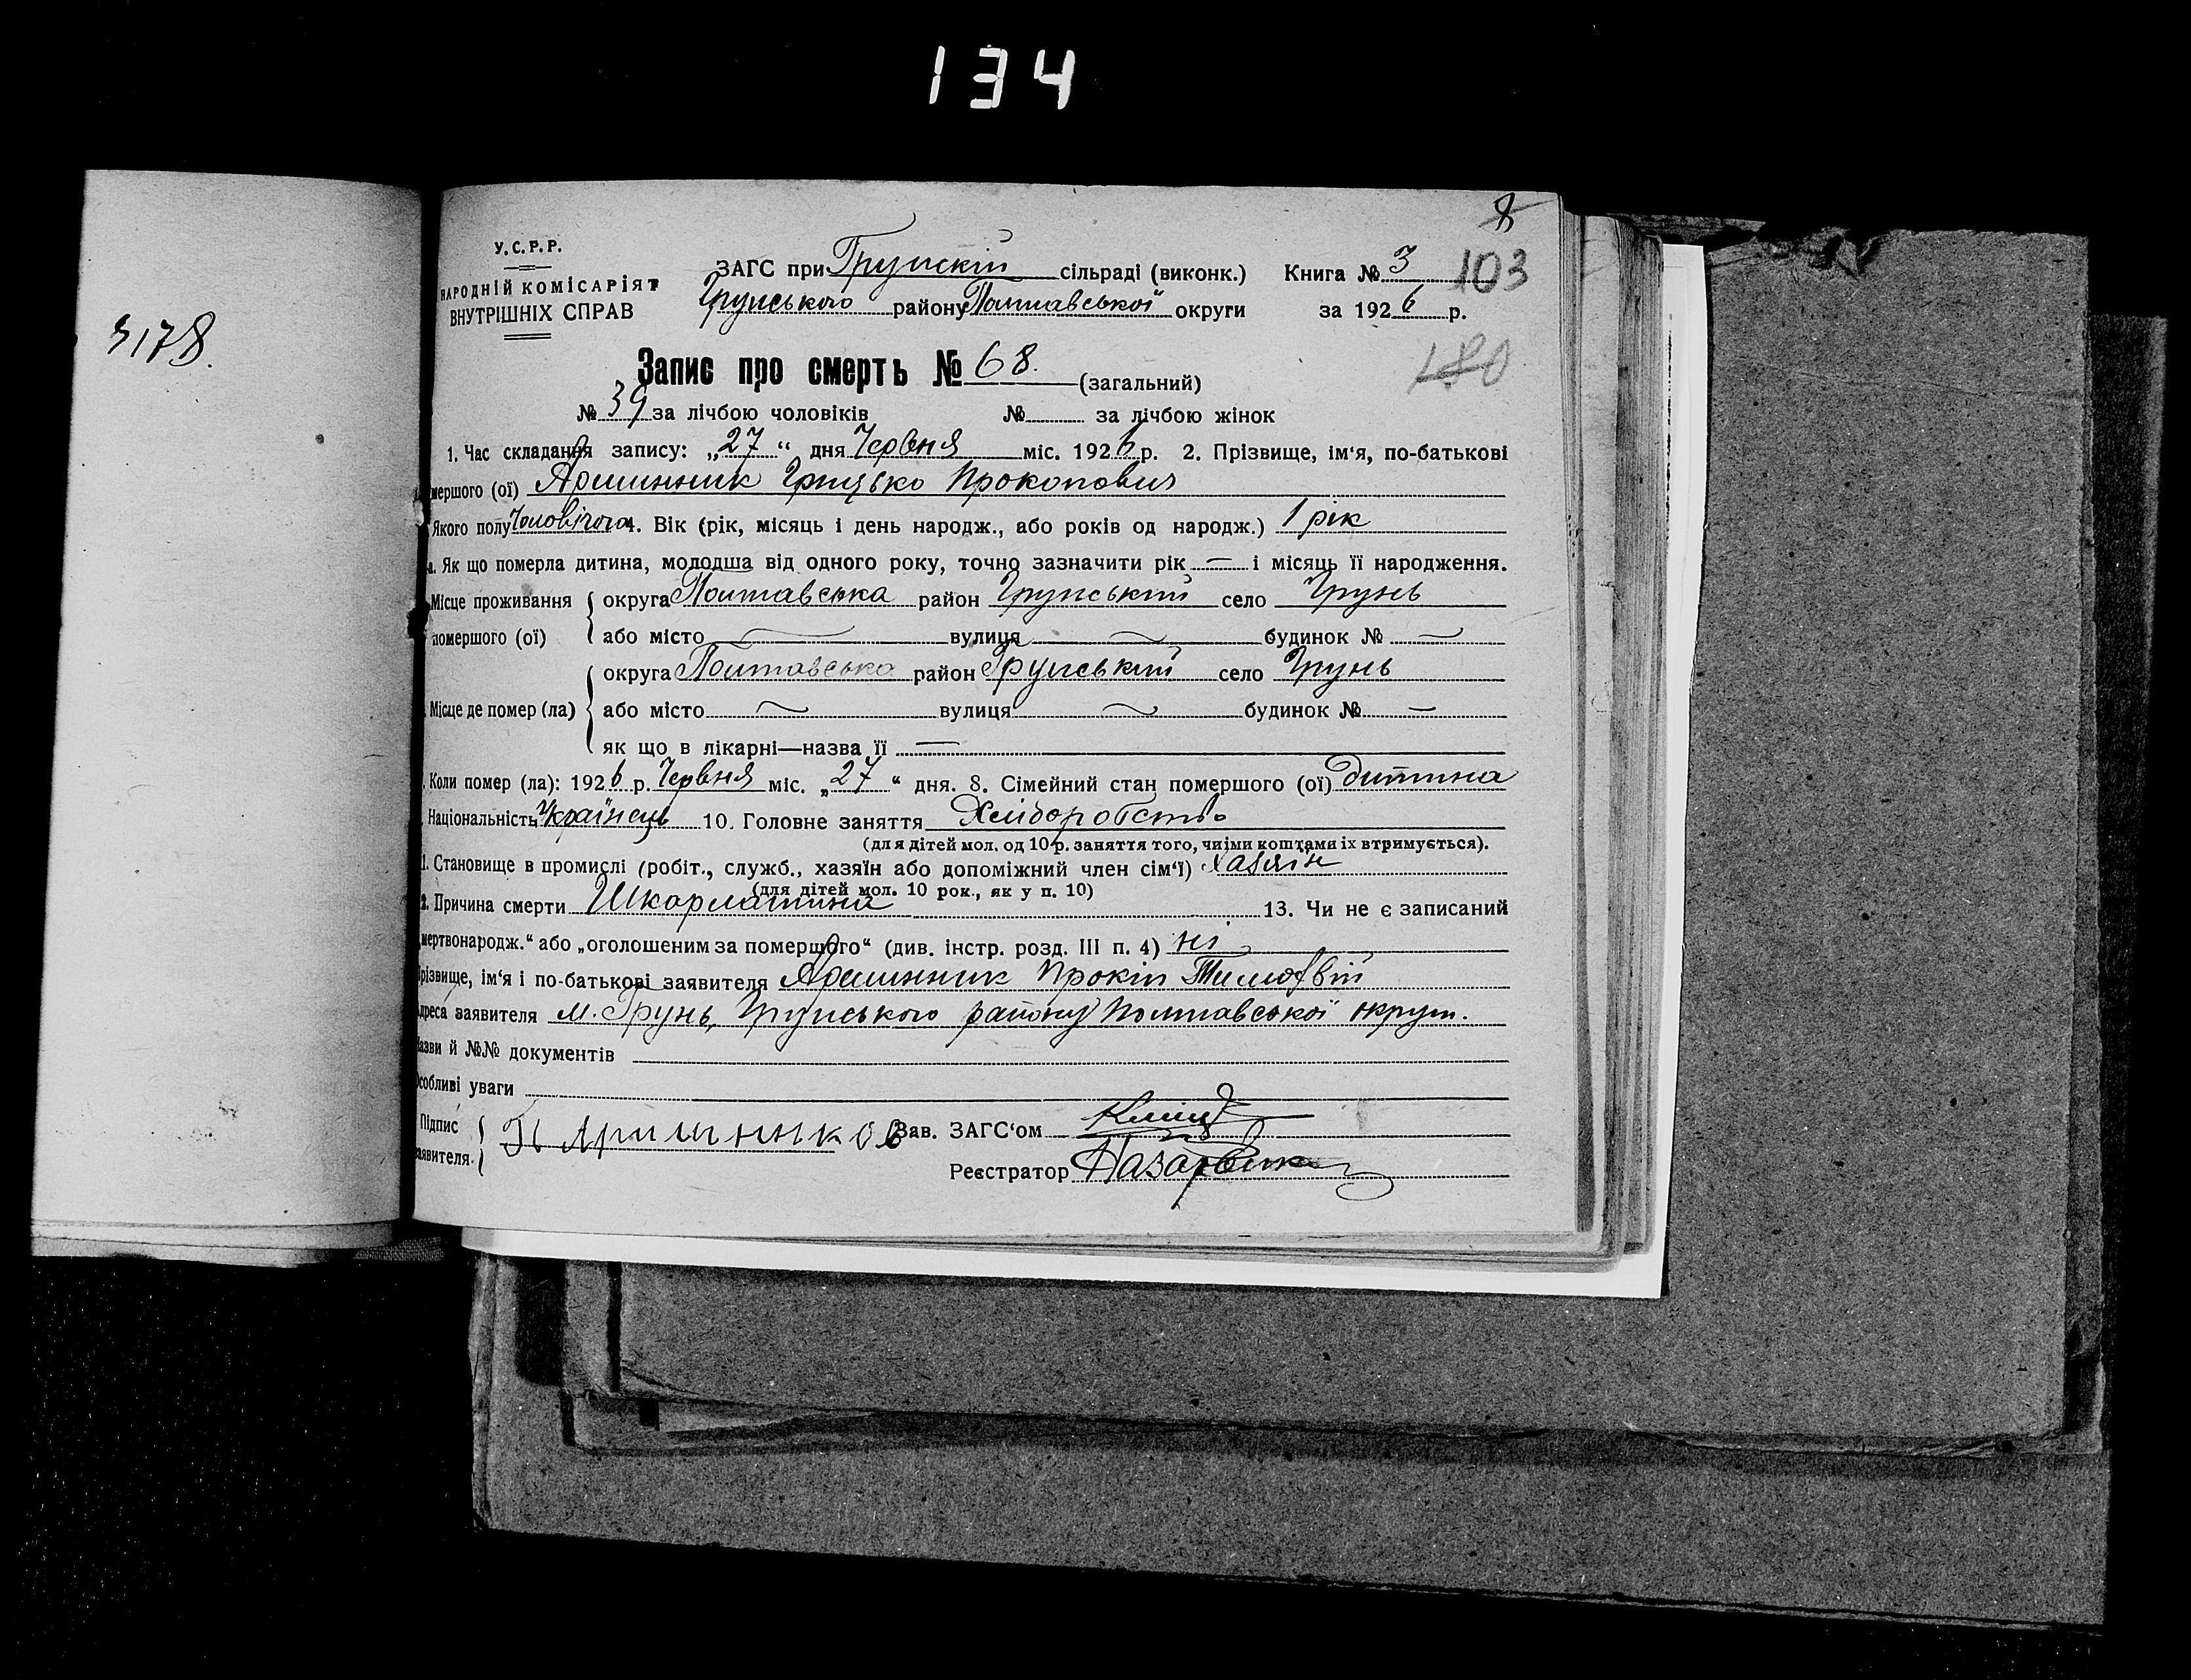 134
8
У.С.Р.Р.
НАРОДНІЙ КОМІСАРІЯТ
ВНУТРІШНІХ СПРАВ
ЗАГС при Грунскій сільраді (виконк.) Книга № 3 103
Грунського району Полтавської округи за 1926 р.
3178.
180
Запис про смерть № 68. (загальний)
№ 39 за лічбою чоловіків № за лічбою жінок
1. Час складання запису: „27“ дня Червня міс. 1926 р. 2. Прізвище, ім‘я, по-батькові
мершого (ої) Аршинник Грицько Прокопович
Якого полу Чоловічого 4. Вік (рік, місяць і день народж., або років од народж.) 1 рік
а. Як що померла дитина, молодша від одного року, точно зазначити рік — і місяць її народження.
Місце проживання округа Полтавська район Грунський село Грунь
помершого (ої) або місто — вулиця — будинок № —
округа Полтавська район Грунський село Грунь
Місце де помер (ла) або місто — вулиця — будинок № —
як що в лікарні—назва її —
Коли помер (ла): 1926 р. Червня міс. „27“ дня. 8. Сімейний стан помершого (ої) дитина
Національність Українець 10. Головне заняття Хліборобство
(для дітей мол. од 10 р. заняття того, чиїми коштами їх втримується).
1. Становище в промислі (робіт., служб., хазяїн або допоміжний член сім‘ї) хазяїн
(для дітей мол. 10 рок., як у п. 10)
2. Причина смерти Шкорлатина 13. Чи не є записаний
„мертвонародж.“ або „оголошеним за померщого“ (див. інстр. розд. III п. 4) ні
різвище, ім‘я і по-батькові заявителя Аршинник Прокіп
дреса заявителя м. Грунь, Грунського району Полтавської округи.
азви й №№ документів
собливі уваги
Підпис П Аришников Зав. ЗАГС‘ом
аявителя
Реєстратор